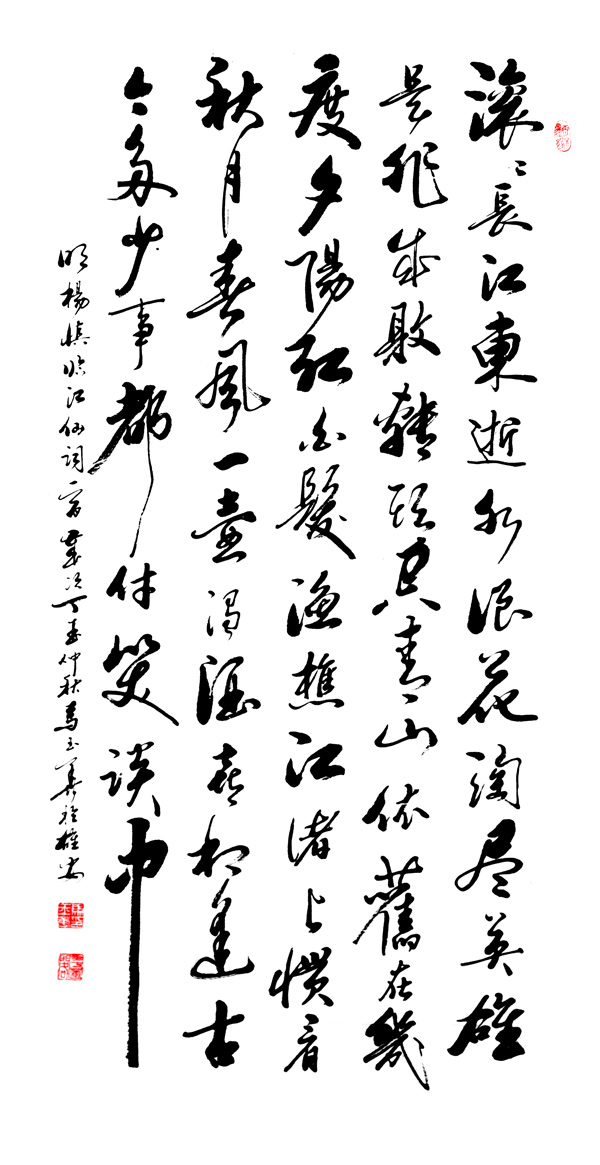 滚々長江東逝水浪花淘尽英雄
是非成敗轉頭空青山依舊在幾
度夕陽紅白髮漁樵江渚上慣看
秋月春風一壺濁酒喜相逢古
今多少事都付笑談中
明楊慎臨江仙詞一首歲次丁酉仲秋馬玉華於雄安